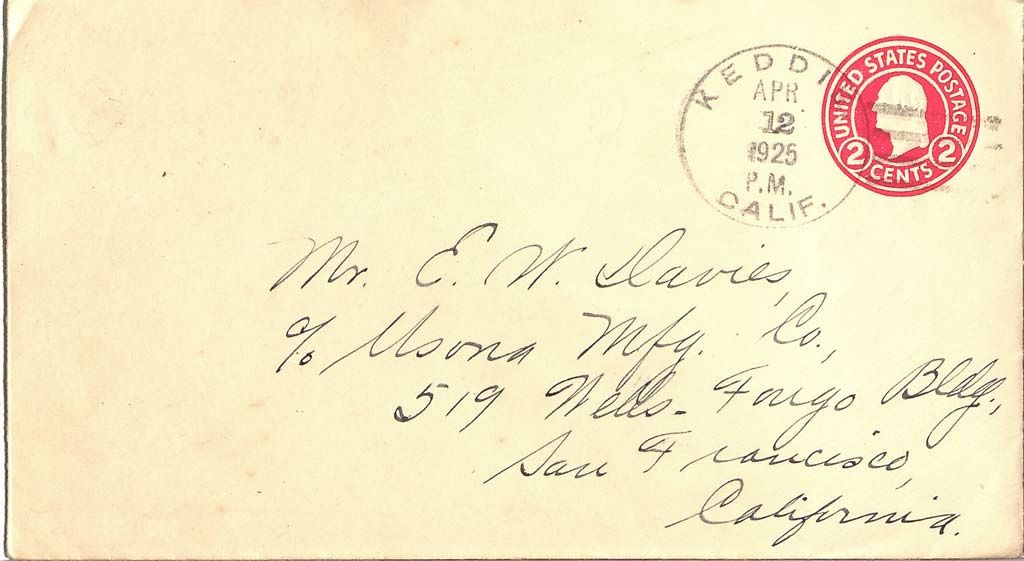 KEDDI
APR
12
1925
P.M.
CALIF.
UNITED STATES POSTAGE
2 CENTS 2
Mr. E. W. Davies,
c/o Usona Mfg. Co.,
519 Wells-Fargo Bldg.,
San Francisco,
California.